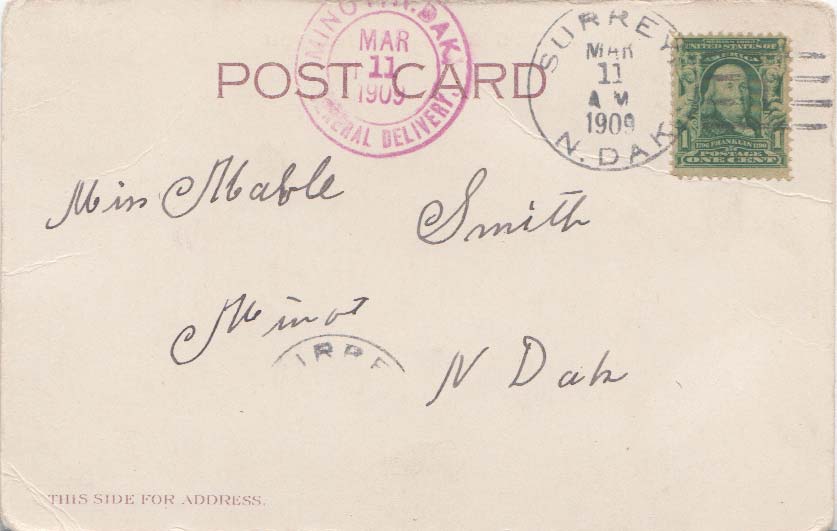 MINOT, N. DAK.
MAR
11
1909
GENERAL DELIVERY.
POST CARD
SURREY
MAR
11
A M
1909
N. DAK.
UNITED STATES OF
AMERICA
1706 FRANKLIN 1790
POSTAGE
1 ONE CENT 1
Miss Mable Smith
Minot
URRE
N Dak
THIS SIDE FOR ADDRESS.